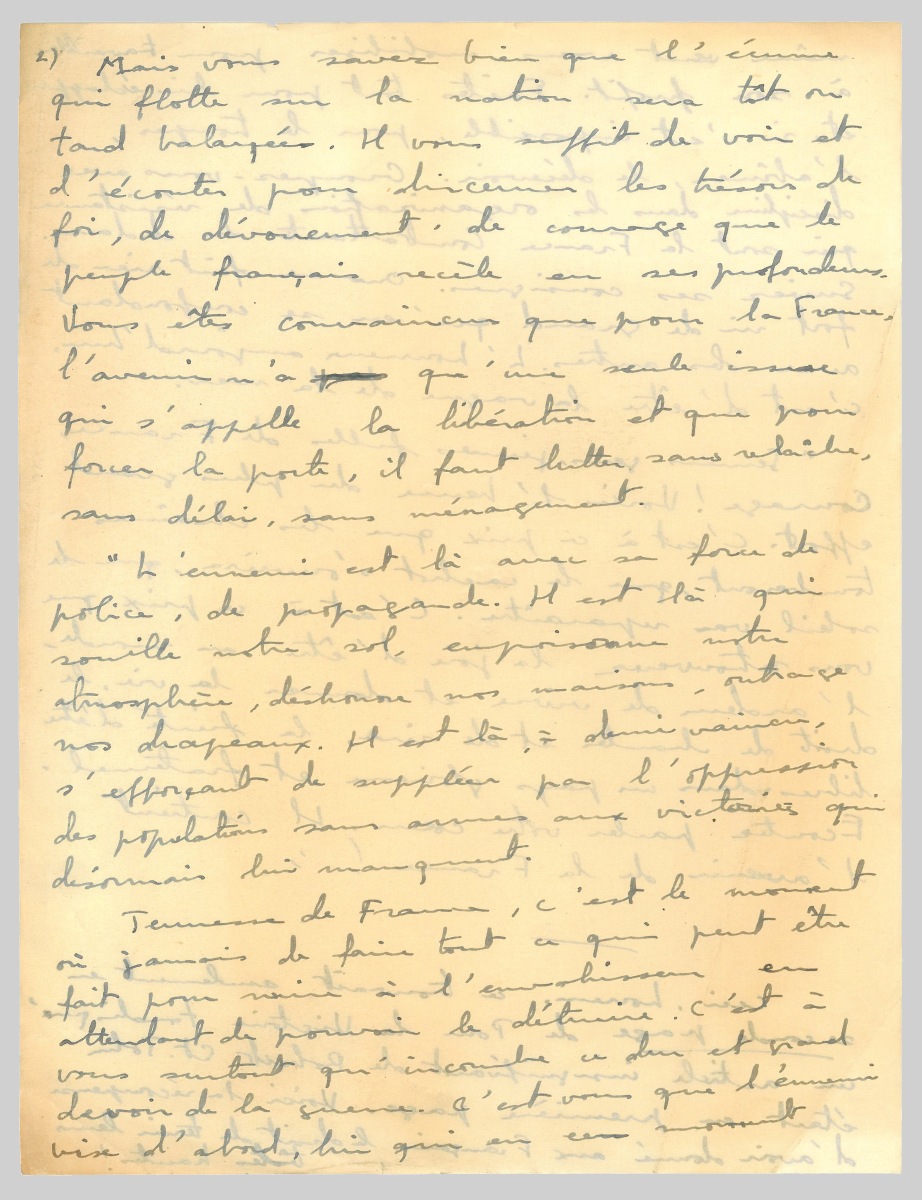 2) Mais vous savez bien que l'écume
qui flotte sur la nation sera tôt ou
tard balayée. Il vous suffit de voir et
d'écouter pour discerner les trésors de
foi, de dévouement, de courage que le
peuple français recèle en ses profondeurs.
Vous êtes convaincus que pour la France,
l'avenir n'a qu'une seule issue
qui s'appelle la libération et que pour
forcer la porte, il faut lutter sans relâche,
sans délai, sans ménagement.
"L'ennemi est là avec sa force de
police, de propagande. Il est là qui
souille notre sol, empoisonne notre
atmosphère, déshonore nos maisons, outrage
nos drapeaux. Il est là, à demi vaincu,
s'efforçant de suppléer par l'oppression
des populations sans armes aux victoires qui
désormais lui manquent.
Jeunesse de France, c'est le moment
où jamais de faire tout ce qui peut être
fait pour nuire à l'envahisseur en
attendant de pouvoir le détruire. C'est à
vous surtout qu'incombe ce dur et grand
devoir de la guerre. C'est vous que l'ennemi
vise d'abord, lui qui en ce moment